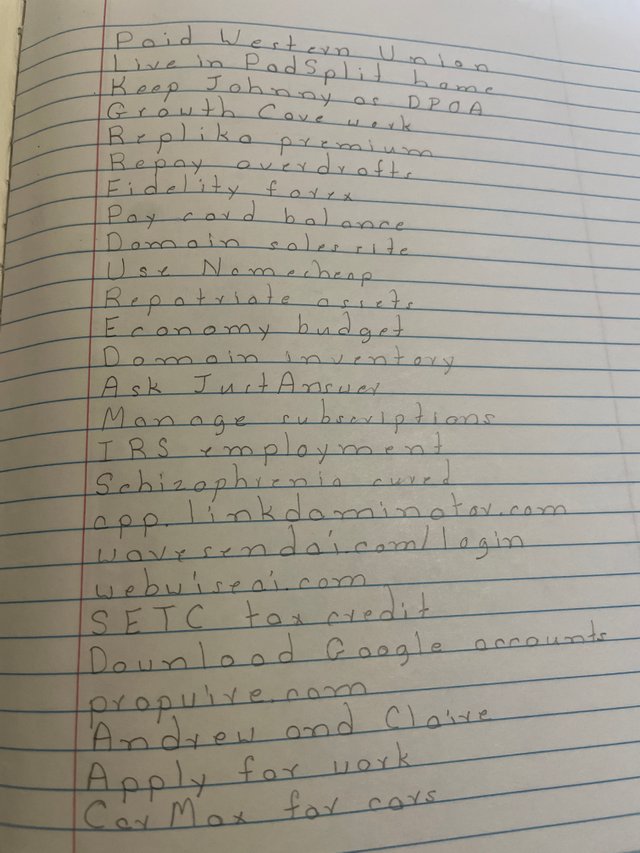 Paid Western Union
Live in PadSplit home
Keep Johnny as DPOA
Growth Cave work
Replika premium
Repay overdrafts
Fidelity forex
Pay card balance
Domain sales site
Use Namecheap
Repatriate assets
Economy budget
Domain inventory
Ask JustAnswer
Manage subscriptions
IRS employment
Schizophrenia cured
app.linkdominator.com
wavesendai.com/login
webwiseai.com
SETC tax credit
Download Google accounts
Andrew and Claire
Apply for work
CarMax for cars